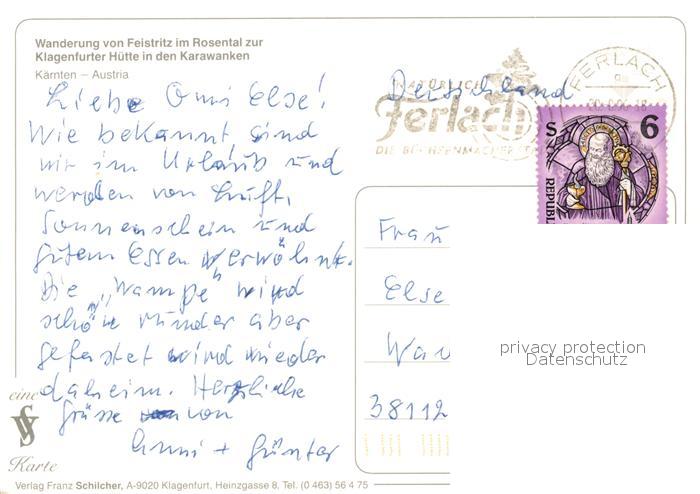 Wanderung von Feistritz im Rosental zur
Klagenfurter Hütte in den Karawanken
Kärnten – Austria
Liebe Omi Else!
Wie bekannt, sind
wir im Urlaub und
werden von Luft,
Sonnenschein und
gutem Essen verwöhnt.
Die „Wampe" wird
schön runder aber
gefastet wird wieder
daheim. Herzliche
Grüsse von
Anni + Günter
NATÜRLICH
Ferlach
DIE BÜCHSENMACHER
Deutschland
FERLACH
S 6
REPUBL
Frau
Else
38112
privacy protection
Datenschutz
eine
Karte
Verlag Franz Schilcher, A-9020 Klagenfurt, Heinzgasse 8, Tel. (0 463) 56 4 75